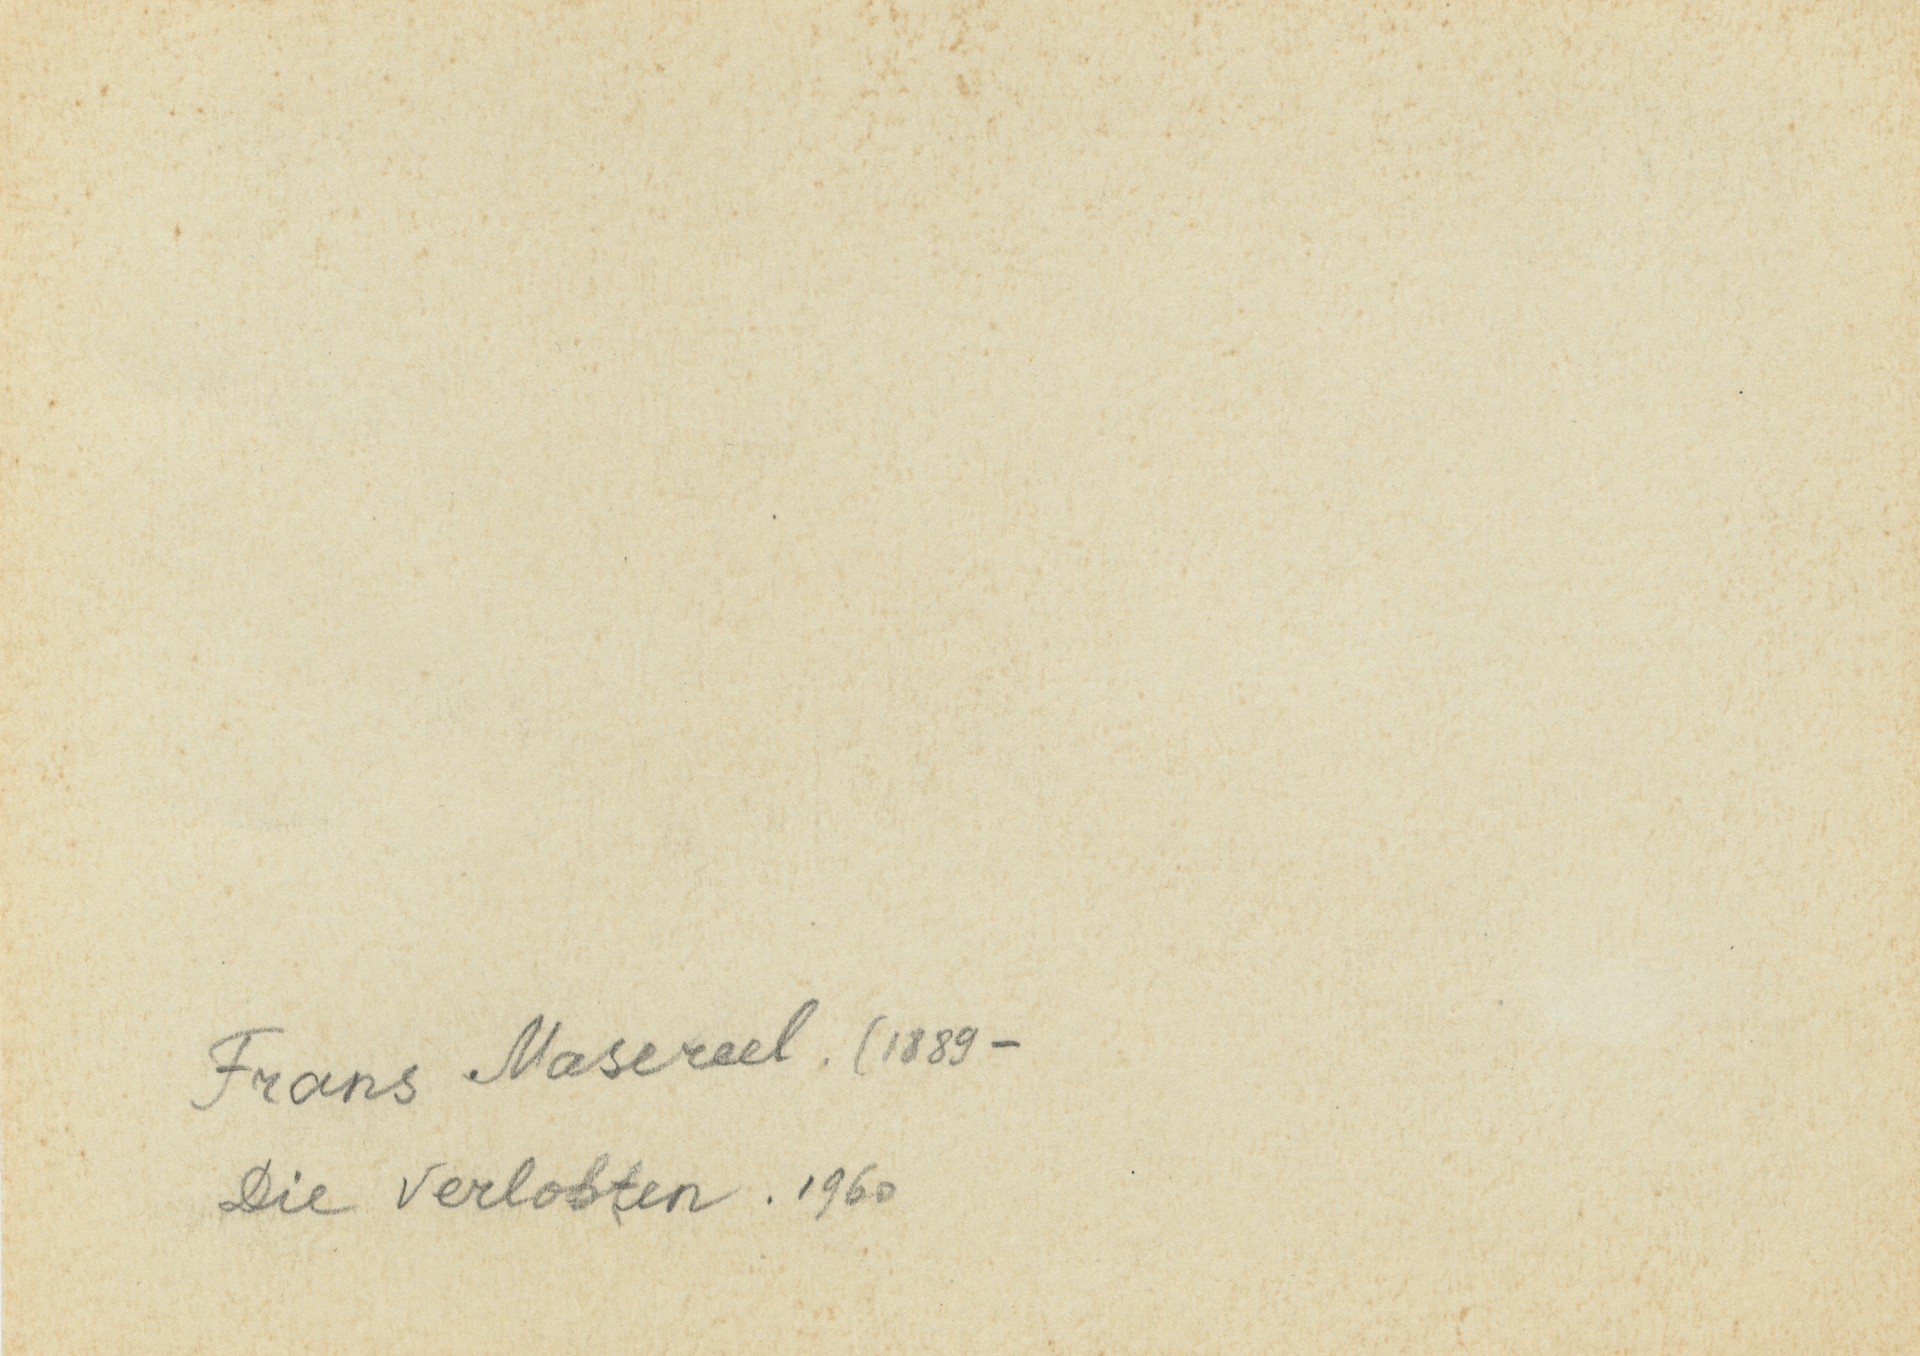 Frans Masereel. (1889-
Die Verlobten. 1960